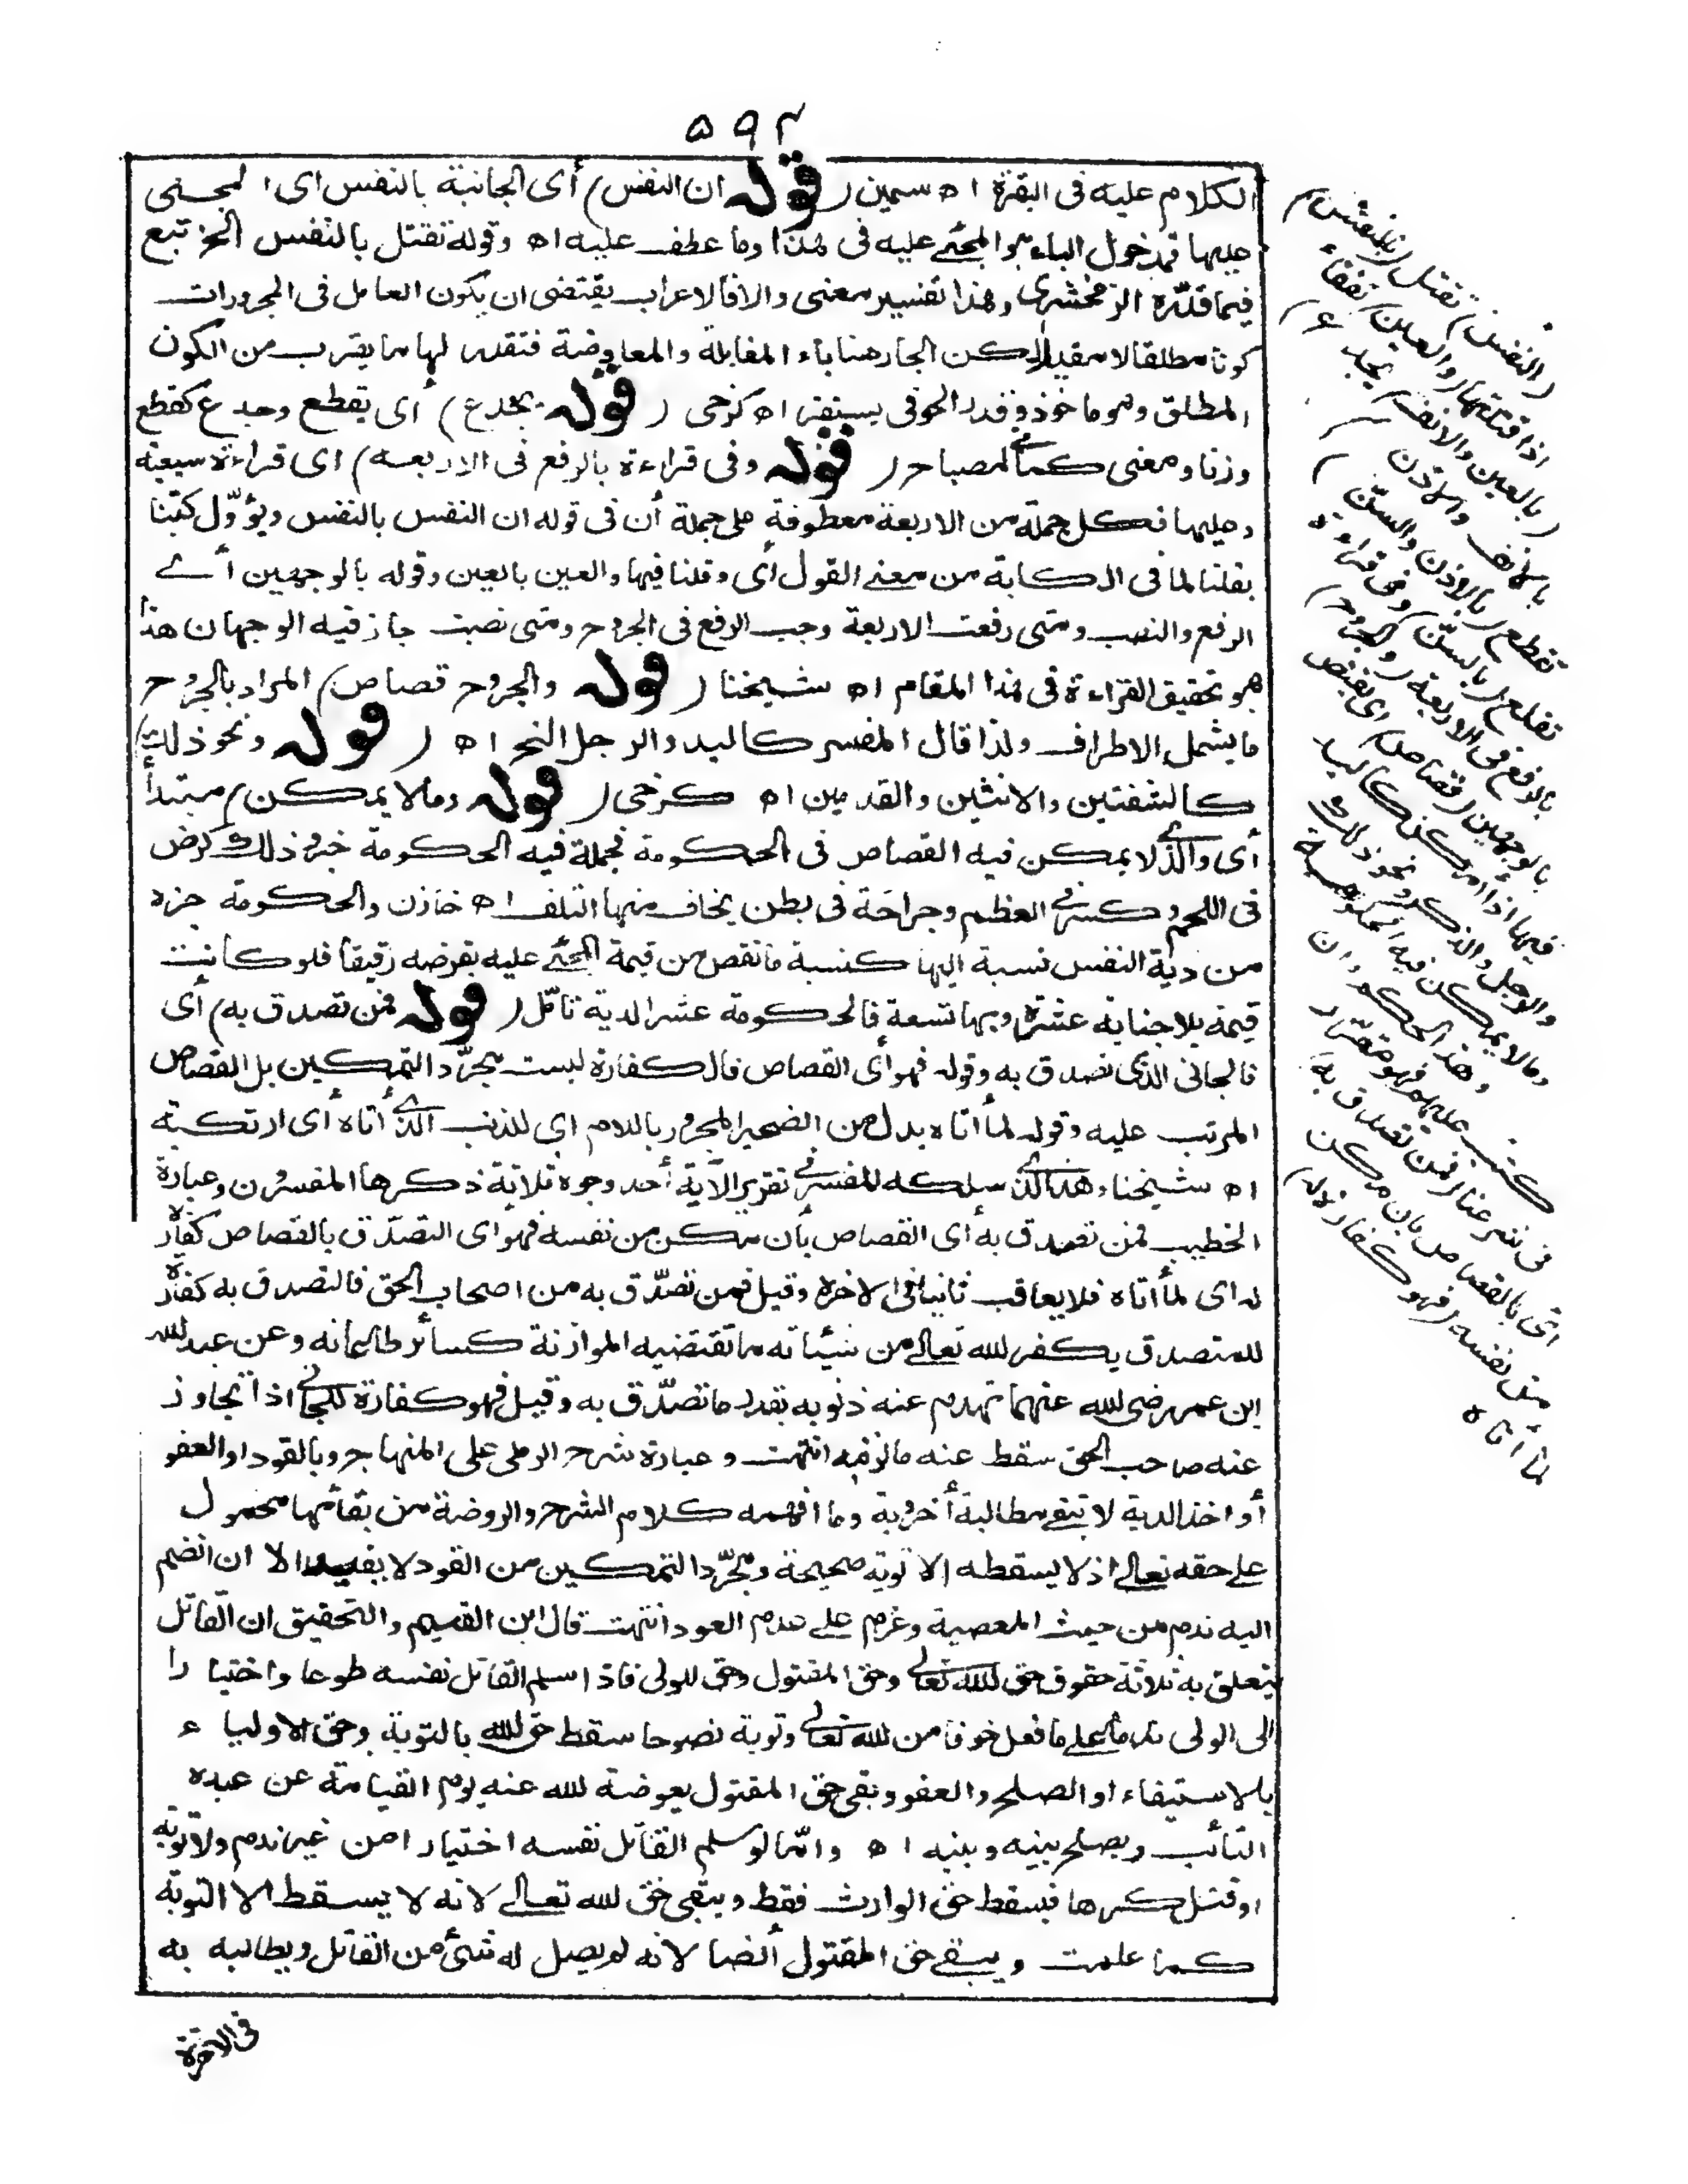 ٥٩٢
الكلام عليه فى البقرة اه سمين (قوله ان النفس) أى الجانية بالنفس اى المجنى
عليها فمدخول الباء هو المجنى عليه فى هذا وما عطف عليه اه وقوله تقتل بالنفس الخ تبع
فيما قدّره الزمخشرى وهذا تفسير معنى والا فالاعراب يقتضى ان يكون العامل فى المجرورات
كونا مطلقا لا مقيدا لكن الجار هنا باء المقابلة والمعاوضة فتقدر لها ما يقرب من الكون
المطلق وهو ماخوذ وقدر الحوفى يستقر اه كرخى (قوله يجدع) أى يقطع وجدع كقطع
وزنا ومعنى كما فى المصباح (قوله وفى قراءة بالرفع فى الاربعة) اى قراءة سبعية
وعليها فكل جملة من الاربعة معطوفة على جملة أن فى قوله ان النفس بالنفس ويؤوّل كتبنا
بقلنا لما فى الكتابة من معنى القول أى وقلنا فيها والعين بالعين وقوله بالوجهين أى
الرفع والنصب ومتى رفعت الاربعة وجب الرفع فى الجروح ومتى نصبت جاز فيه الوجهان هذا
هو تحقيق القراءة فى هذا المقام اه شيخنا (قوله والجروح قصاص) المراد بالجروح
ما يشمل الاطراف ولذا قال المفسر كاليد والرجل الخ اه (قوله ونحو ذلك)
كالشفتين والانثيين والقدمين اه كرخى (قوله وما لا يمكن) مبتدأ
أى والذى لا يمكن فيه القصاص فى الحكومة فجملة فيه الحكومة خبر وذلك كرض
فى اللحم وكسر فى العظم وجراحة فى بطن يخاف منها التلف اه خازن والحكومة جزء
من دية النفس نسبة اليها كنسبة ما نقص من قيمة المجنى عليه بفرضه رقيقا فلو كانت
قيمة بلا جناية عشرة وبها تسعة فالحكومة عشر الدية تامّل (قوله فمن تصدق به) أى
فالجانى الذى تصدق به وقوله فهو أى القصاص فالكفارة ليست مجرّد التمكين بل القصاص
المرتب عليه وقوله لما أتاه بدل من الضمير المجرور باللام اى للذنب الذى أتاه أى ارتكبه
اه شيخنا وهذا الذى سلكه المفسر فى تقرير الآية أحد وجوه ثلاثة ذكرها المفسرون وعبارة
الخطيب فمن تصدق به أى القصاص بأن مكن من نفسه فهو اى التصدّق بالقصاص كفارة
له اى لما أتاه فلا يعاقب ثانيا فى الاخرة وقيل فمن تصدّق به من اصحاب الحق فالتصدق به كفارة
للمتصدق يكفر الله تعالى من سيئاته ما تقتضيه الموازنة كسائر طاعاته وعن عبد الله
ابن عمر رضى الله عنهما تهدم عنه ذنوبه بقدر ما تصدّق به وقيل فهو كفارة للجانى اذا تجاوز
عنه صاحب الحق سقط عنه ما لزمه انتهت وعبارة شرح الرملى على المنهاج وبالقود او العفو
أو اخذ الدية لا تبقى مطالبة أخروية وما افهمه كلام الشرح والروضة من بقائها محمول
على حقه تعالى اذ لا يسقطه الا توبة صحيحة ومجرّد التمكين من القود لا يفيد الا ان انضم
اليه ندم من حيث المعصية وعزم على عدم العود انتهت قال ابن القيم والتحقيق ان القاتل
يتعلق به ثلاثة حقوق حق لله تعالى وحق المقتول وحق للولى فاذا سلم القاتل نفسه طوعا واختيارا
الى الولى ندما على ما فعل خوفا من الله تعالى وتوبة نصوحا سقط حق الله بالتوبة وحق الاولياء
بالاستيفاء او الصلح والعفو وبقى حق المقتول يعوضه الله عنه يوم القيامة عن عبده
التائب ويصلح بينه وبينه اه وامّا لو سلم القاتل نفسه اختيارا من غير ندم ولا توبة
او قتل كرها فيسقط حق الوارث فقط ويبقى حق الله تعالى لانه لا يسقط الا التوبة
كما علمت ويبقى حق المقتول أيضا لانه لم يصل له شئ من القاتل ويطالبه به
فى الاخرة
(النفس) تقتل (بالنفس)
اذا قتلتها (والعين) تفقأ
(بالعين والانف) يجدع
بالانف والاذن
تقطع (بالاذن والسنّ)
تقلع (بالسنّ) وفى قراءة
بالرفع فى الاربعة (والجروح)
بالوجهين (قصاص) اى يقتص
فيها اذا أمكن كاليد
والرجل والذكر ونحو ذلك
وما لا يمكن فيه الحكومة
وهذا الحكم وان
كتب عليهم فهو مقرّر
فى شرعنا (فمن تصدق به)
اى بالقصاص بان مكن
من نفسه (فهو كفارة له)
لما أتاه